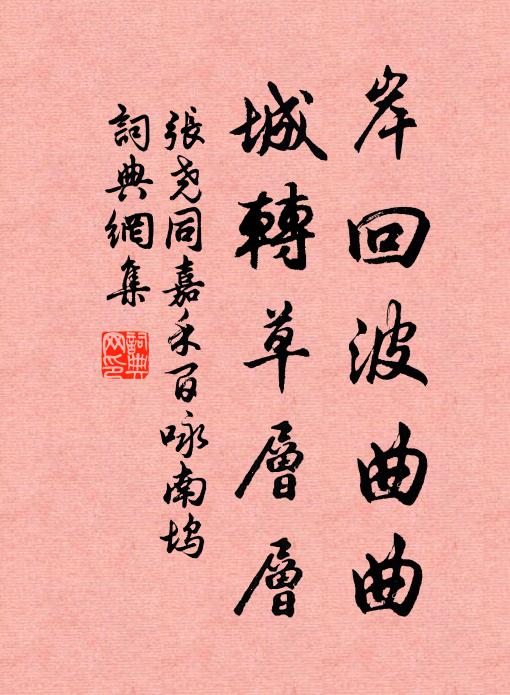 岸回波曲曲
城轉草層層
張尧同嘉禾百咏南塢
詞典網集
詞典网印